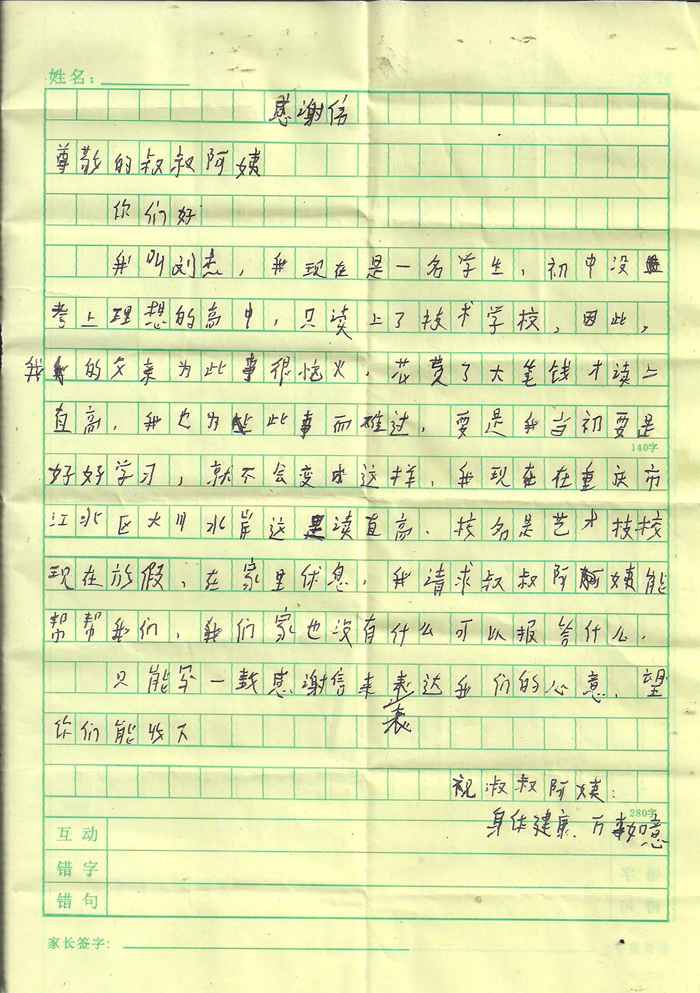 姓名:
感谢信
尊敬的叔叔阿姨
你们好
我叫刘杰,我现在是一名学生,初中没
考上理想的高中,只读上了技术学校,因此,
我的父亲为此事很恼火,花费了大笔钱才读上
直高,我也为此事而难过,要是我当初要是
140字
好好学习,就不会变成这样,我现在在重庆市
江北区大川水岸这里读直高,校名是艺才技校
现在放假,在家里休息,我请求叔叔阿姨能
帮帮我们,我们家也没有什么可以报答什么,
只能写一封感谢信来表达我们的心意,望
表
你们能收下
祝淑叔阿姨:
280字
身体健康,万事如意
互动
错字
错句
家长签字: